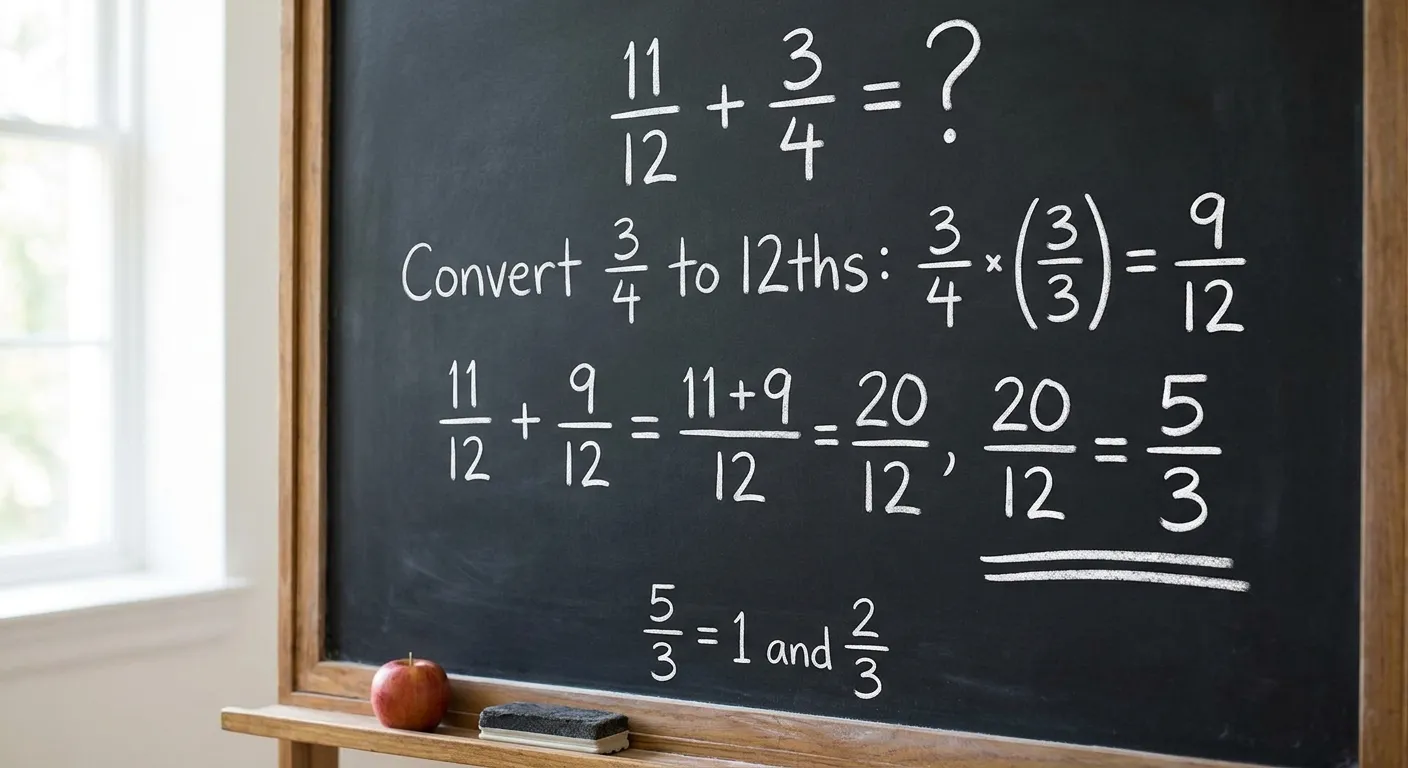 11/12 + 3/4 = ?
Convert 3/4 to 12ths: 3/4 × (3/3) = 9/12
11/12 + 9/12 = 11+9/12 = 20/12, 20/12 = 5/3
5/3 = 1 and 2/3